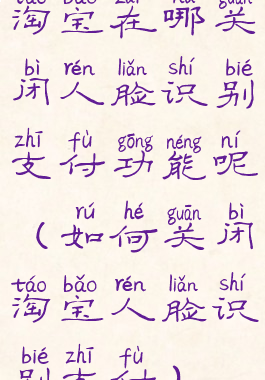 táo bǎo zài nǎ guān
淘宝在哪关
bì rén liǎn shí bié
闭人脸识别
zhī fù gōng néng ní
支付功能呢
rú hé guān bì
(如何关闭
táo bǎo rén liǎn shí
淘宝人脸识
bié zhī fù
别支付)